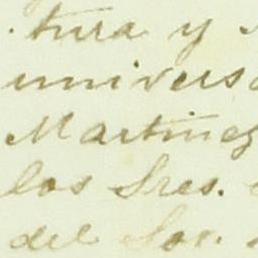 tura y
univers
Martinez
los Sres.
del Sor.